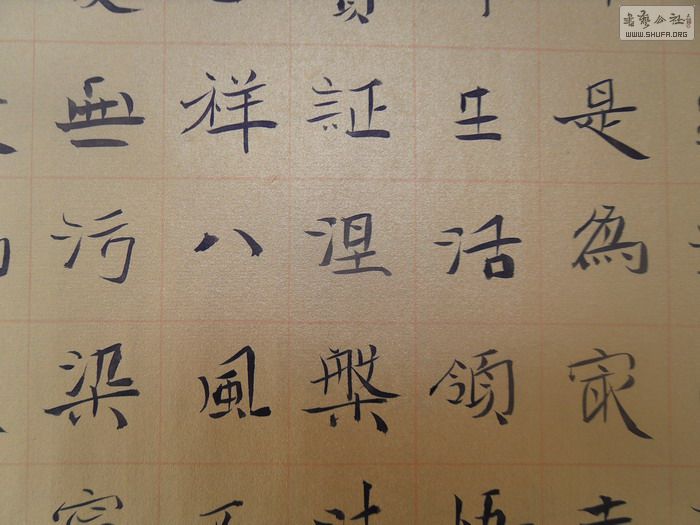 書藝公社
WWW.SHUFA.ORG
是為㝡吉
生活領悟
証涅槃法
祥八風不
無污染